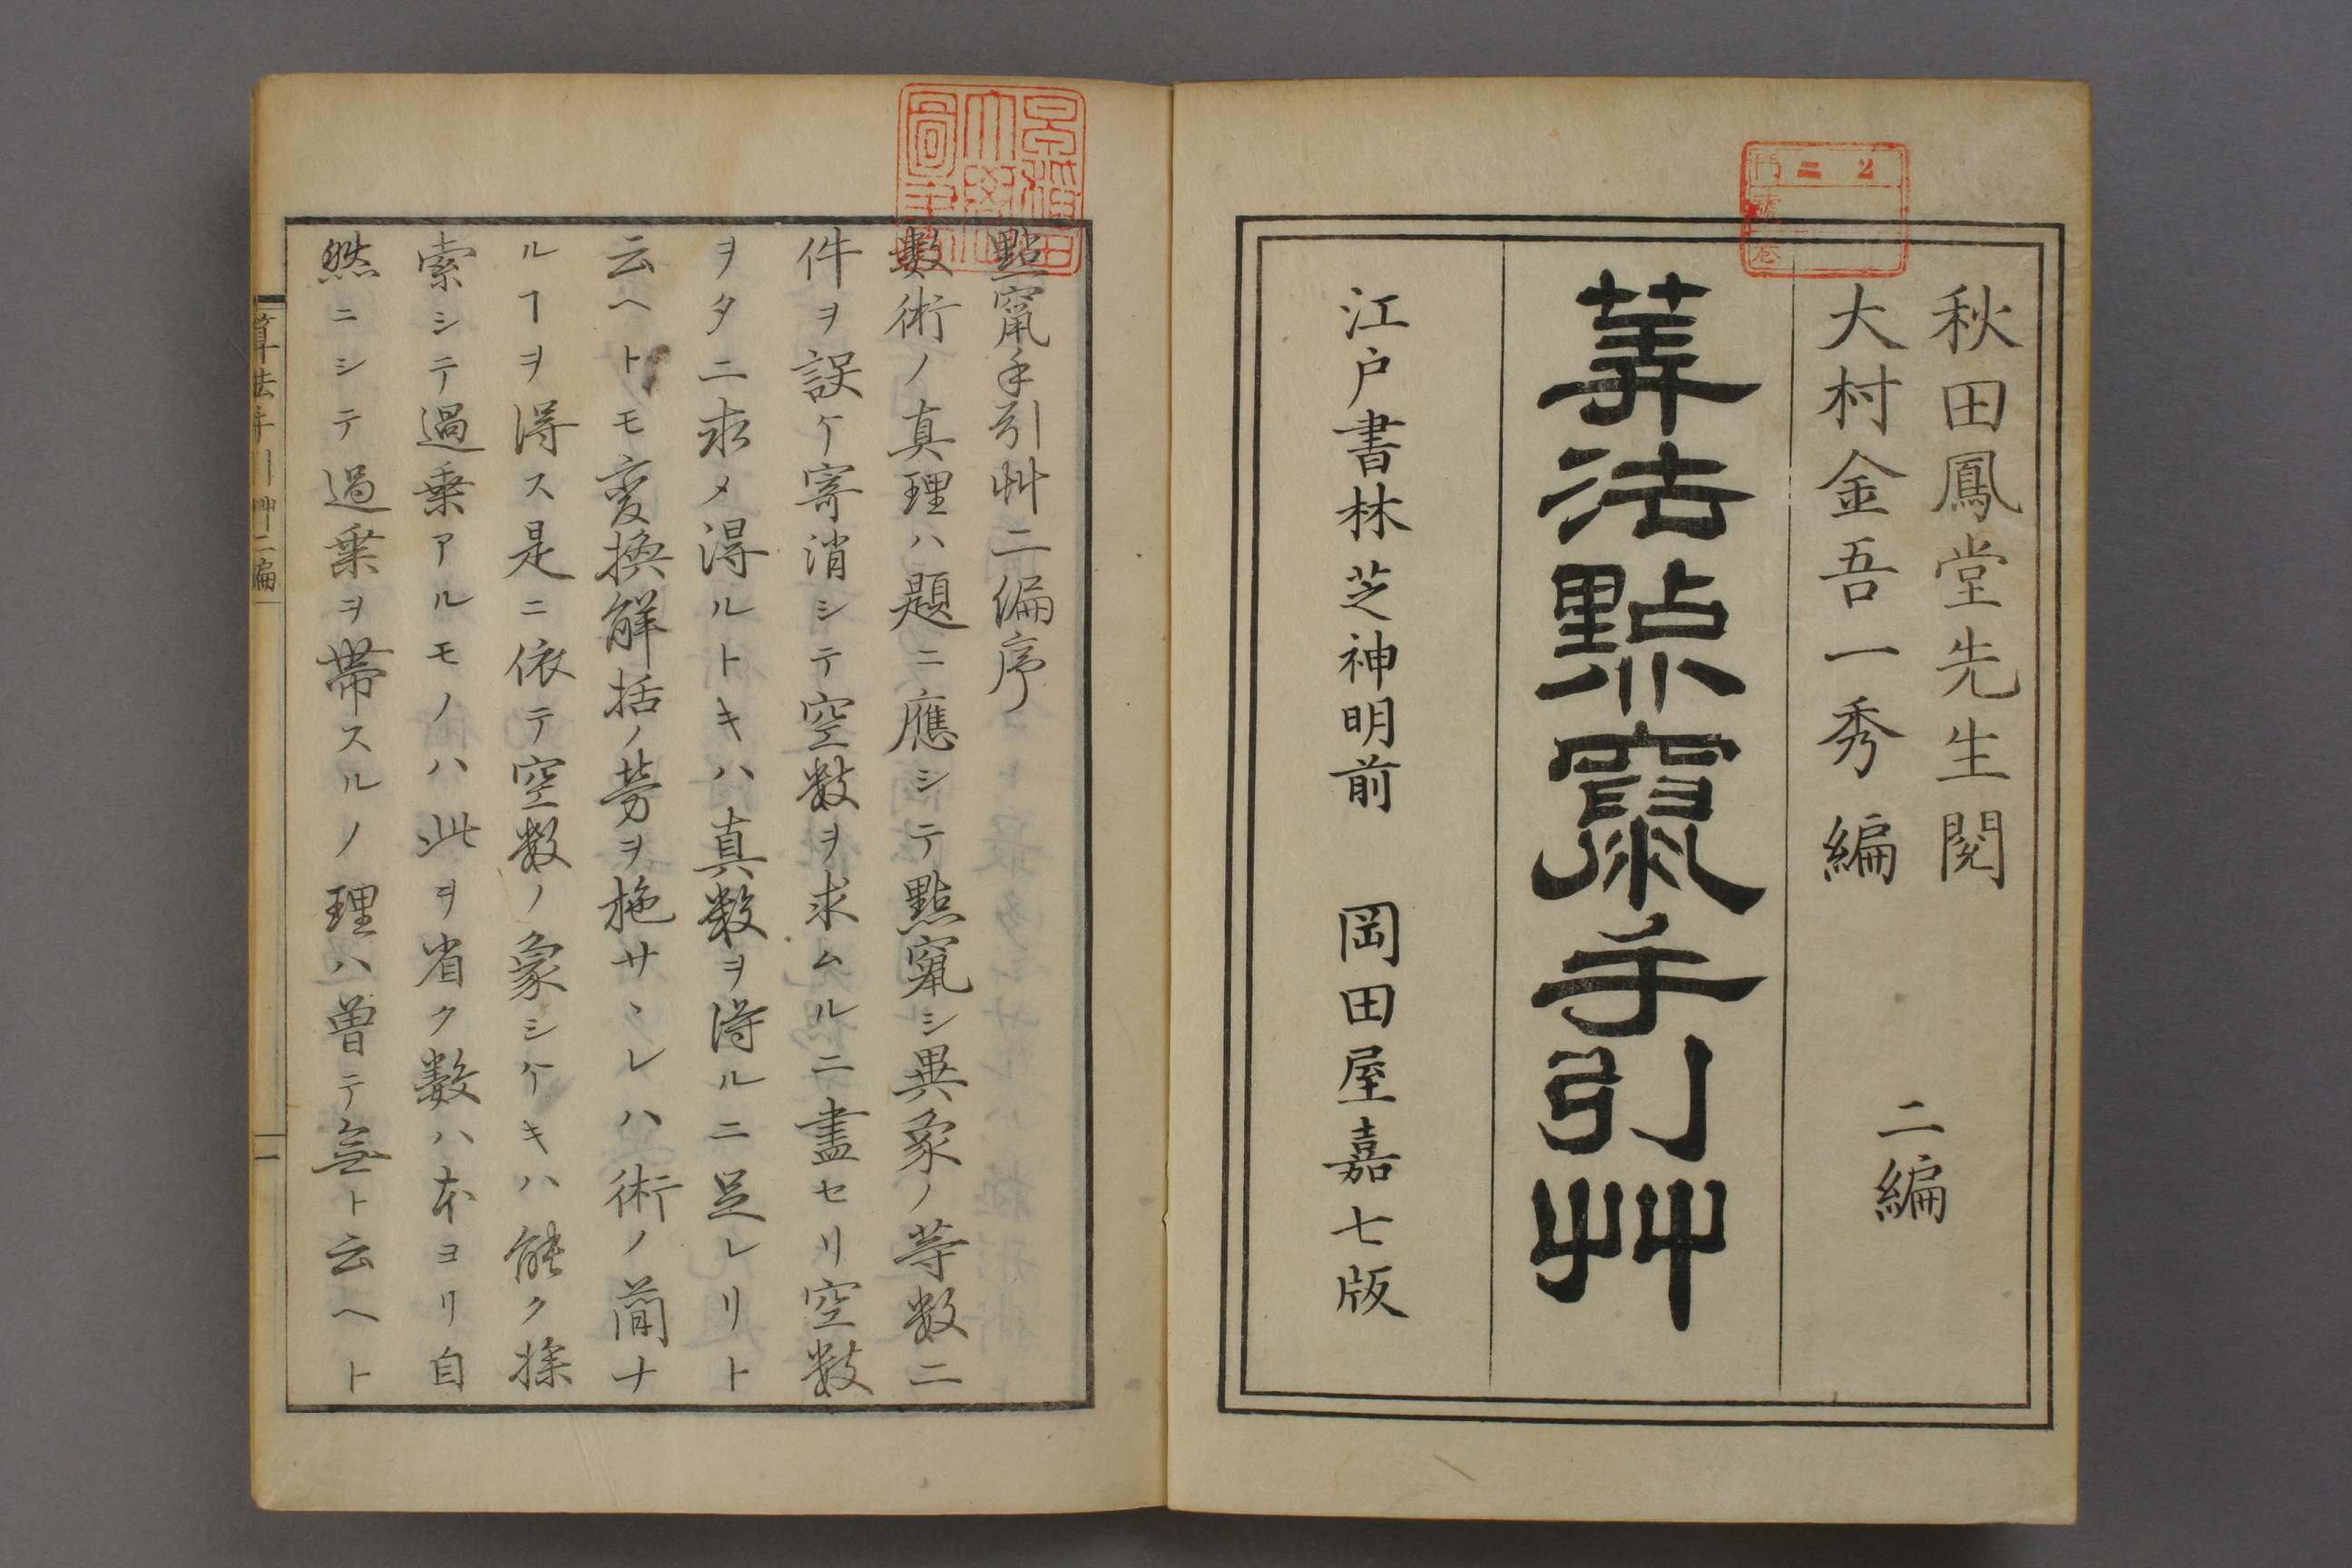 秋田鳳堂先生閲
大村金吾一秀編
二編
算法點竄手引艸
江戸書林芝神明前 岡田屋嘉七版
2
二
門
號
巻
早稲田
大學
圖書
點竄手引艸二編序
數術ノ真理ハ題ニ應シテ點竄シ異象ノ等数二
件ヲ設ケ寄消シテ空数ヲ求ムルニ盡セリ空数
ヲタニ求メ得ルトキハ真数ヲ得ルニ足レリト
云ヘトモ変換解括ノ労ヲ施サヽレハ術ノ簡ナ
ルヿヲ得ス是ニ依テ空数ノ象シケキハ能ク探
索シテ過乗アルモノハ此ヲ省ク数ハ本ヨリ自
然ニシテ過乗ヲ帯スルノ理ハ曽テ無ト云ヘト
算法手引艸二編
一